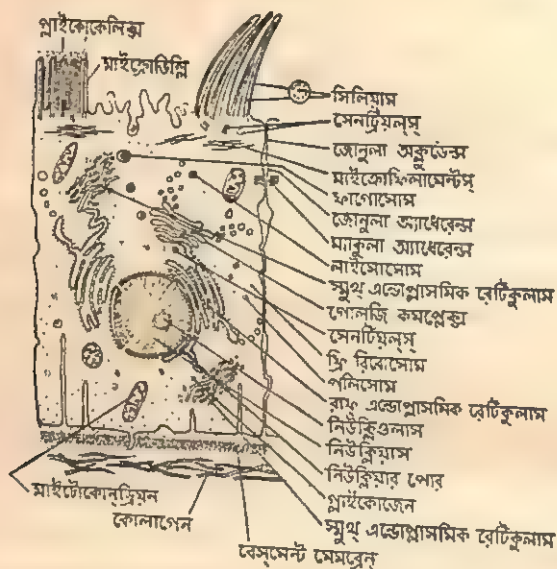 গ্লাইকোকেলিক্স
মাইক্রোভিল্লি
সিলিয়াম
সেনট্রিয়লস্
জোনুলা অক্লুডেন্স
মাইক্রোফিলামেন্টস্
ফাগোসোম
জোনুলা অ্যাধেরেন্স
ম্যাকুলা অ্যাধেরেন্স
লাইসোসোম
স্মুথ্ এন্ডোপ্লাসমিক রেটিকুলাম
গোলজি কমপ্লেক্স
সেনট্রিয়লস্
ফ্রি রিবোসোম
পলিসোম
রাফ্ এন্ডোপ্লাসমিক রেটিকুলাম
নিউক্লিওলাস
নিউক্লিয়াস
নিউক্লিয়ার পোর
গ্লাইকোজেন
স্মুথ্ এন্ডোপ্লাসমিক রেটিকুলাম
মাইটোকোন্ড্রিয়ন
কোলাগেন
বেস্‌মেন্ট মেমব্রেন